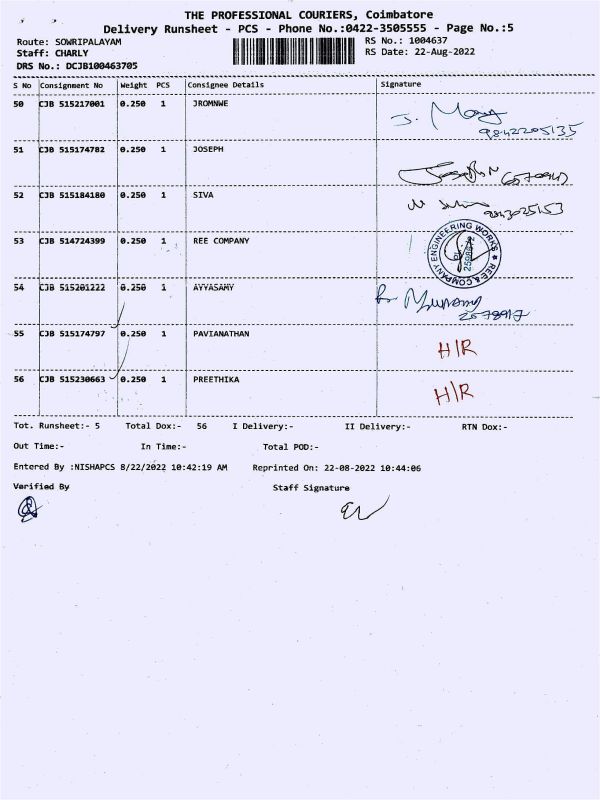 THE PROFESSIONAL COURIERS, Coimbatore
Delivery Runsheet - PCS - Phone No.:0422-3505555 - Page No.:5
Route: SOWRIPALAYAM
Staff: CHARLY
DRS No.: DCJB100463705
RS No.: 1004637
RS Date: 22-Aug-2022
S No Consignment No Weight PCS Consignee Details Signature
50 CJB 515217001 0.250 1 JROMNWE
9842205135
51 CJB 515174782 0.250 1 JOSEPH
52 CJB 515184180 0.250 1 SIVA
53 CJB 514724399 0.250 1 REE COMPANY
REE & COMPANY ENGINEERING WORKS
54 CJB 515201222 0.250 1 AYYASAMY
55 CJB 515174797 0.250 1 PAVIANATHAN H/R
56 CJB 515230663 0.250 1 PREETHIKA H/R
Tot. Runsheet:- 5 Total Dox:- 56 I Delivery:- II Delivery:- RTN Dox:-
Out Time:- In Time:- Total POD:-
Entered By :NISHAPCS 8/22/2022 10:42:19 AM Reprinted On: 22-08-2022 10:44:06
Verified By Staff Signature